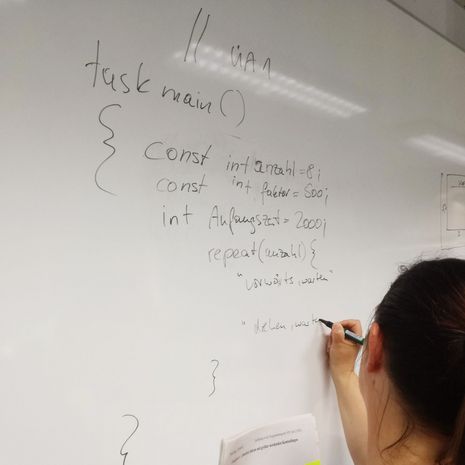 // ÜA1
task main()
{
const int anzahl=8;
const int faktor=500;
int Anfangszeit=2000;
repeat(anzahl){
"vorwärts, warten"
"drehen, warten
}
}